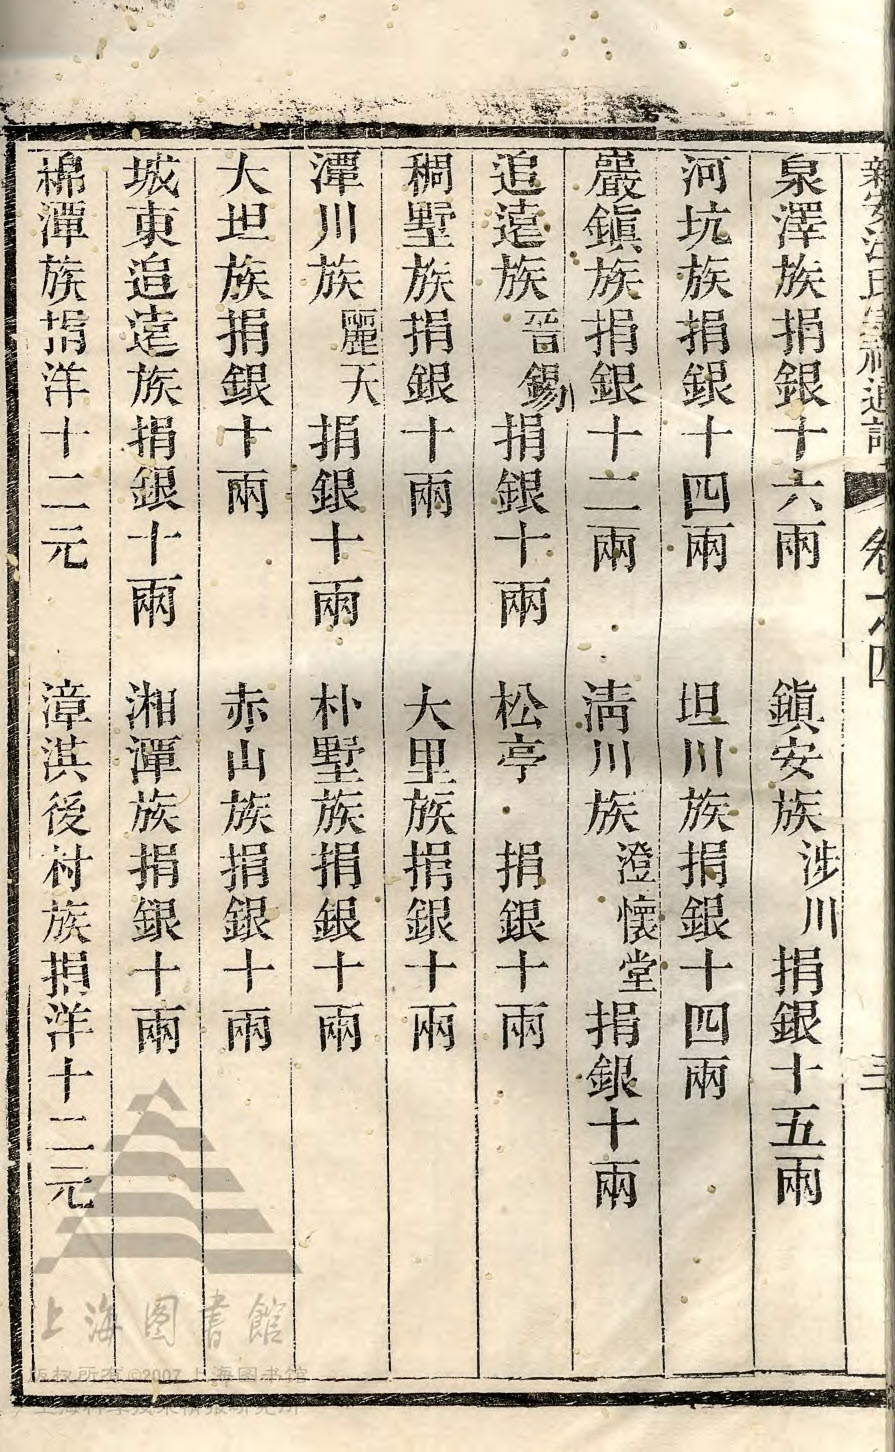 新安汪氏宗祠通譜 卷之四 三
泉澤族捐銀十六兩 鎮安族涉川捐銀十五兩
河坑族捐銀十四兩 坦川族捐銀十四兩
巖鎮族捐銀十二兩 清川族澄懷堂捐銀十兩
追遠族晉錫捐銀十兩 松亭 捐銀十兩
稠墅族捐銀十兩 大里族捐銀十兩
潭川族麗天捐銀十兩 朴墅族捐銀十兩
大坦族捐銀十兩 赤山族捐銀十兩
城東追遠族捐銀十兩 湘潭族捐銀十兩
綿潭族捐洋十二元 漳淇後村族捐洋十二元
上海图书館
版权所有©2007上海图书馆